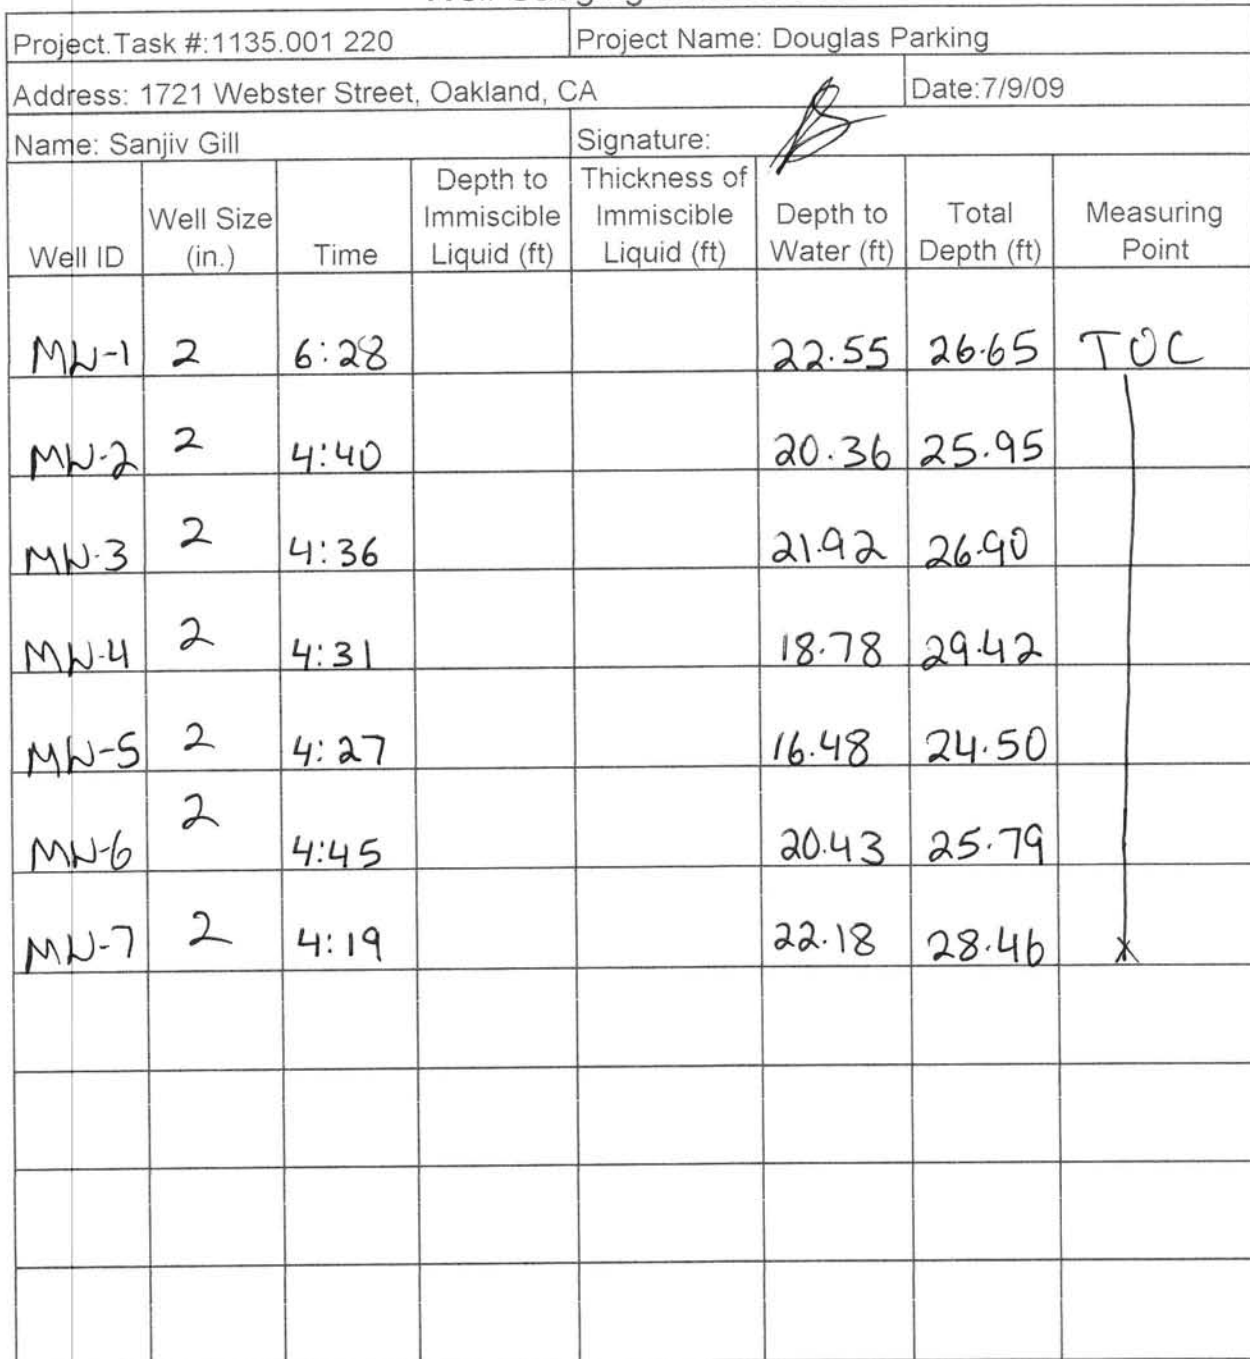 Project.Task #:1135.001 220 Project Name: Douglas Parking
Address: 1721 Webster Street, Oakland, CA Date:7/9/09
Name: Sanjiv Gill Signature:
Well ID Well Size (in.) Time Depth to Immiscible Liquid (ft) Thickness of Immiscible Liquid (ft) Depth to Water (ft) Total Depth (ft) Measuring Point
MW-1 2 6:28 22.55 26.65 TOC
MW-2 2 4:40 20.36 25.95
MW-3 2 4:36 21.92 26.90
MW-4 2 4:31 18.78 29.42
MW-5 2 4:27 16.48 24.50
MW-6 2 4:45 20.43 25.79
MW-7 2 4:19 22.18 28.46